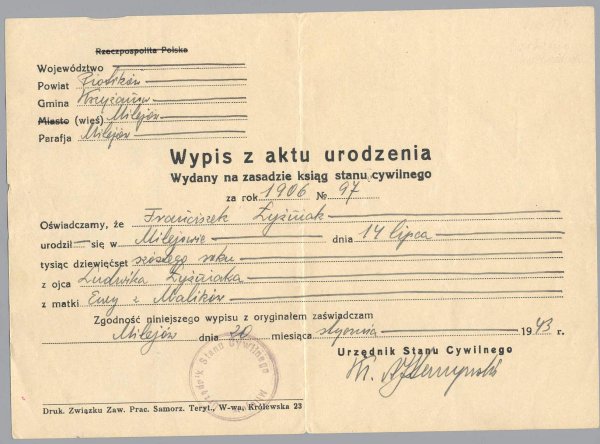 Rzeczpospolita Polska
Województwo
Powiat Piotrków
Gmina Krzyżanów
Miasto (wieś) Milejów
Parafja Milejów
Wypis z aktu urodzenia
Wydany na zasadzie ksiąg stanu cywilnego
za rok 1906 № 97
Oświadczamy, że Franciszek Łyźniak
urodził się w Milejowie dnia 14 lipca
tysiąc dziewięćset szóstego roku
z ojca Ludwika Łyźniaka
z matki Ewy z Malików
Zgodność niniejszego wypisu z oryginałem zaświadczam
Milejów dnia 20 miesiąca stycznia 1943 r.
Urzędnik Stanu Cywilnego
Urzędnik Stanu Cywilnego
Druk. Związku Zaw. Prac. Samorz. Teryt., W-wa, Królewska 23